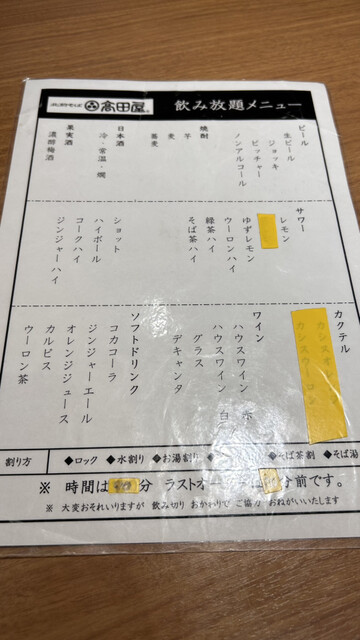 高田屋 飲み放題メニュー
ビール
生ビール
ジョッキ
ピッチャー
ノンアルコール
焼酎
芋
麦
蕎麦
日本酒
冷・常温・燗
果実酒
濃醇梅酒
サワー
レモン
ゆずレモン
ウーロンハイ
緑茶ハイ
そば茶ハイ
ショット
ハイボール
コークハイ
ジンジャーハイ
カクテル
カシスオレンジ
カシスウーロン
ワイン
ハウスワイン 赤
ハウスワイン 白
グラス
デキャンタ
ソフトドリンク
コカコーラ
ジンジャーエール
オレンジジュース
カルピス
ウーロン茶
割り方 ◆ロック ◆水割り ◆お湯割り ◆そば茶割 ◆そば湯
※ 時間は 分 ラストオーダーは 分前です。
※ 大変おそれいりますが 飲み切り おかわりで ご協力 おねがいいたします